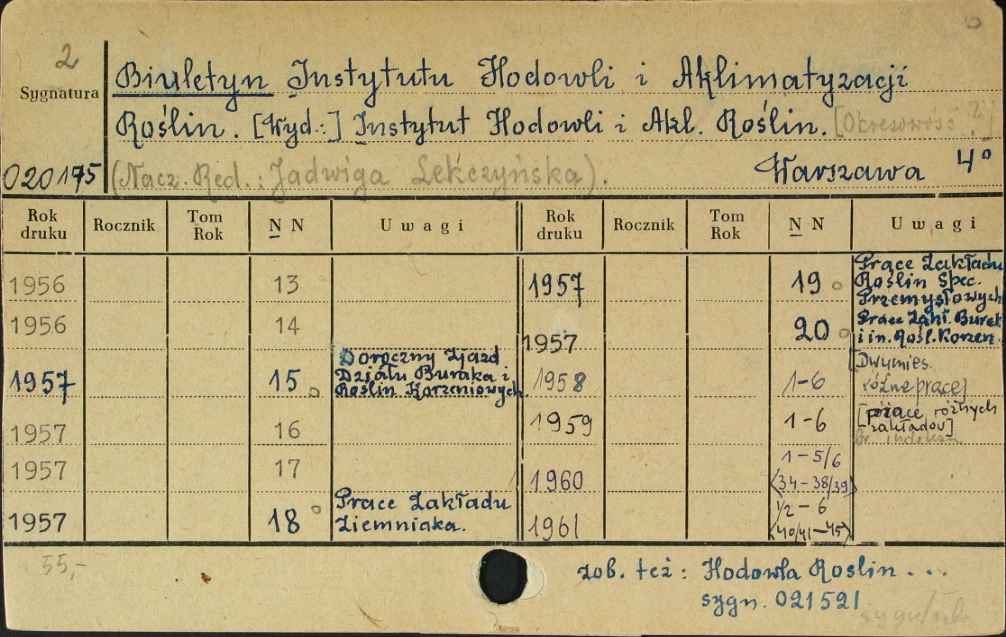 2
Sygnatura
Biuletyn Instytutu Hodowli i Aklimatyzacji
Roślin. [Wyd.:] Instytut Hodowli i Akl. Roślin. [Okresowość ?]
020175 (Nacz. Red.: Jadwiga Lekczyńska). Warszawa 4°
Rok druku Rocznik Tom Rok N N Uwagi Rok druku Rocznik Tom Rok N N Uwagi
1956 13
1956 14
1957 15 Doroczny Zjazd Działu Buraka i Roślin Korzeniowych
1957 16
1957 17
1957 18 Prace Zakładu Ziemniaka.
1957 19 Prace Zakładu Roślin Spec. Przemysłowych
1957 20 Prace Zakł. Burak i in. Rośl. Korzen.
1958 1-6 [Dwumies. różne prace]
1959 1-6 [prace różnych zakładów]
1960 1-5/6 (34-38/39)
1961 1/2-6 (40/41-45)
55,-
zob. też: Hodowla Roslin...
sygn. 021521